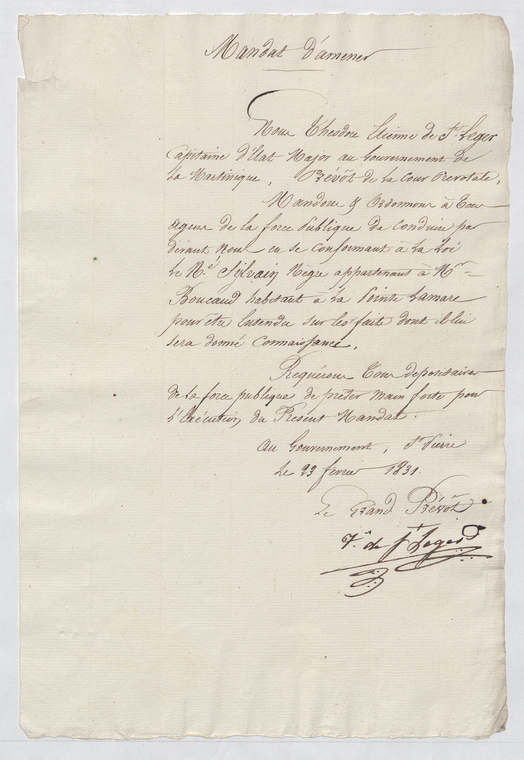 Mandat d'amener
Nous Theodore Etienne de St. Leger
Capitaine d'Etat Major au Gouvernement de
la Martinique, Prévôt de la Cour Prevotale,
Mandons & Ordonnons à Tous
Agens de la force Publique de Conduire par
devant Nous en se Conformant à la Loi
le Né. Sylvain Nègre appartenant à Mr.
Boucaud habitant à la Pointe Lamare
pour être Entendu sur les faits dont il lui
sera donné Connaissance,
Requérons Tous depositaires
de la force publique de prêter Main forte pour
l'Exécution du Présent Mandat.
Au Gouvernement, St. Pierre
le 23 février 1831.
Le Grand Prévôt
T. de St. Leger